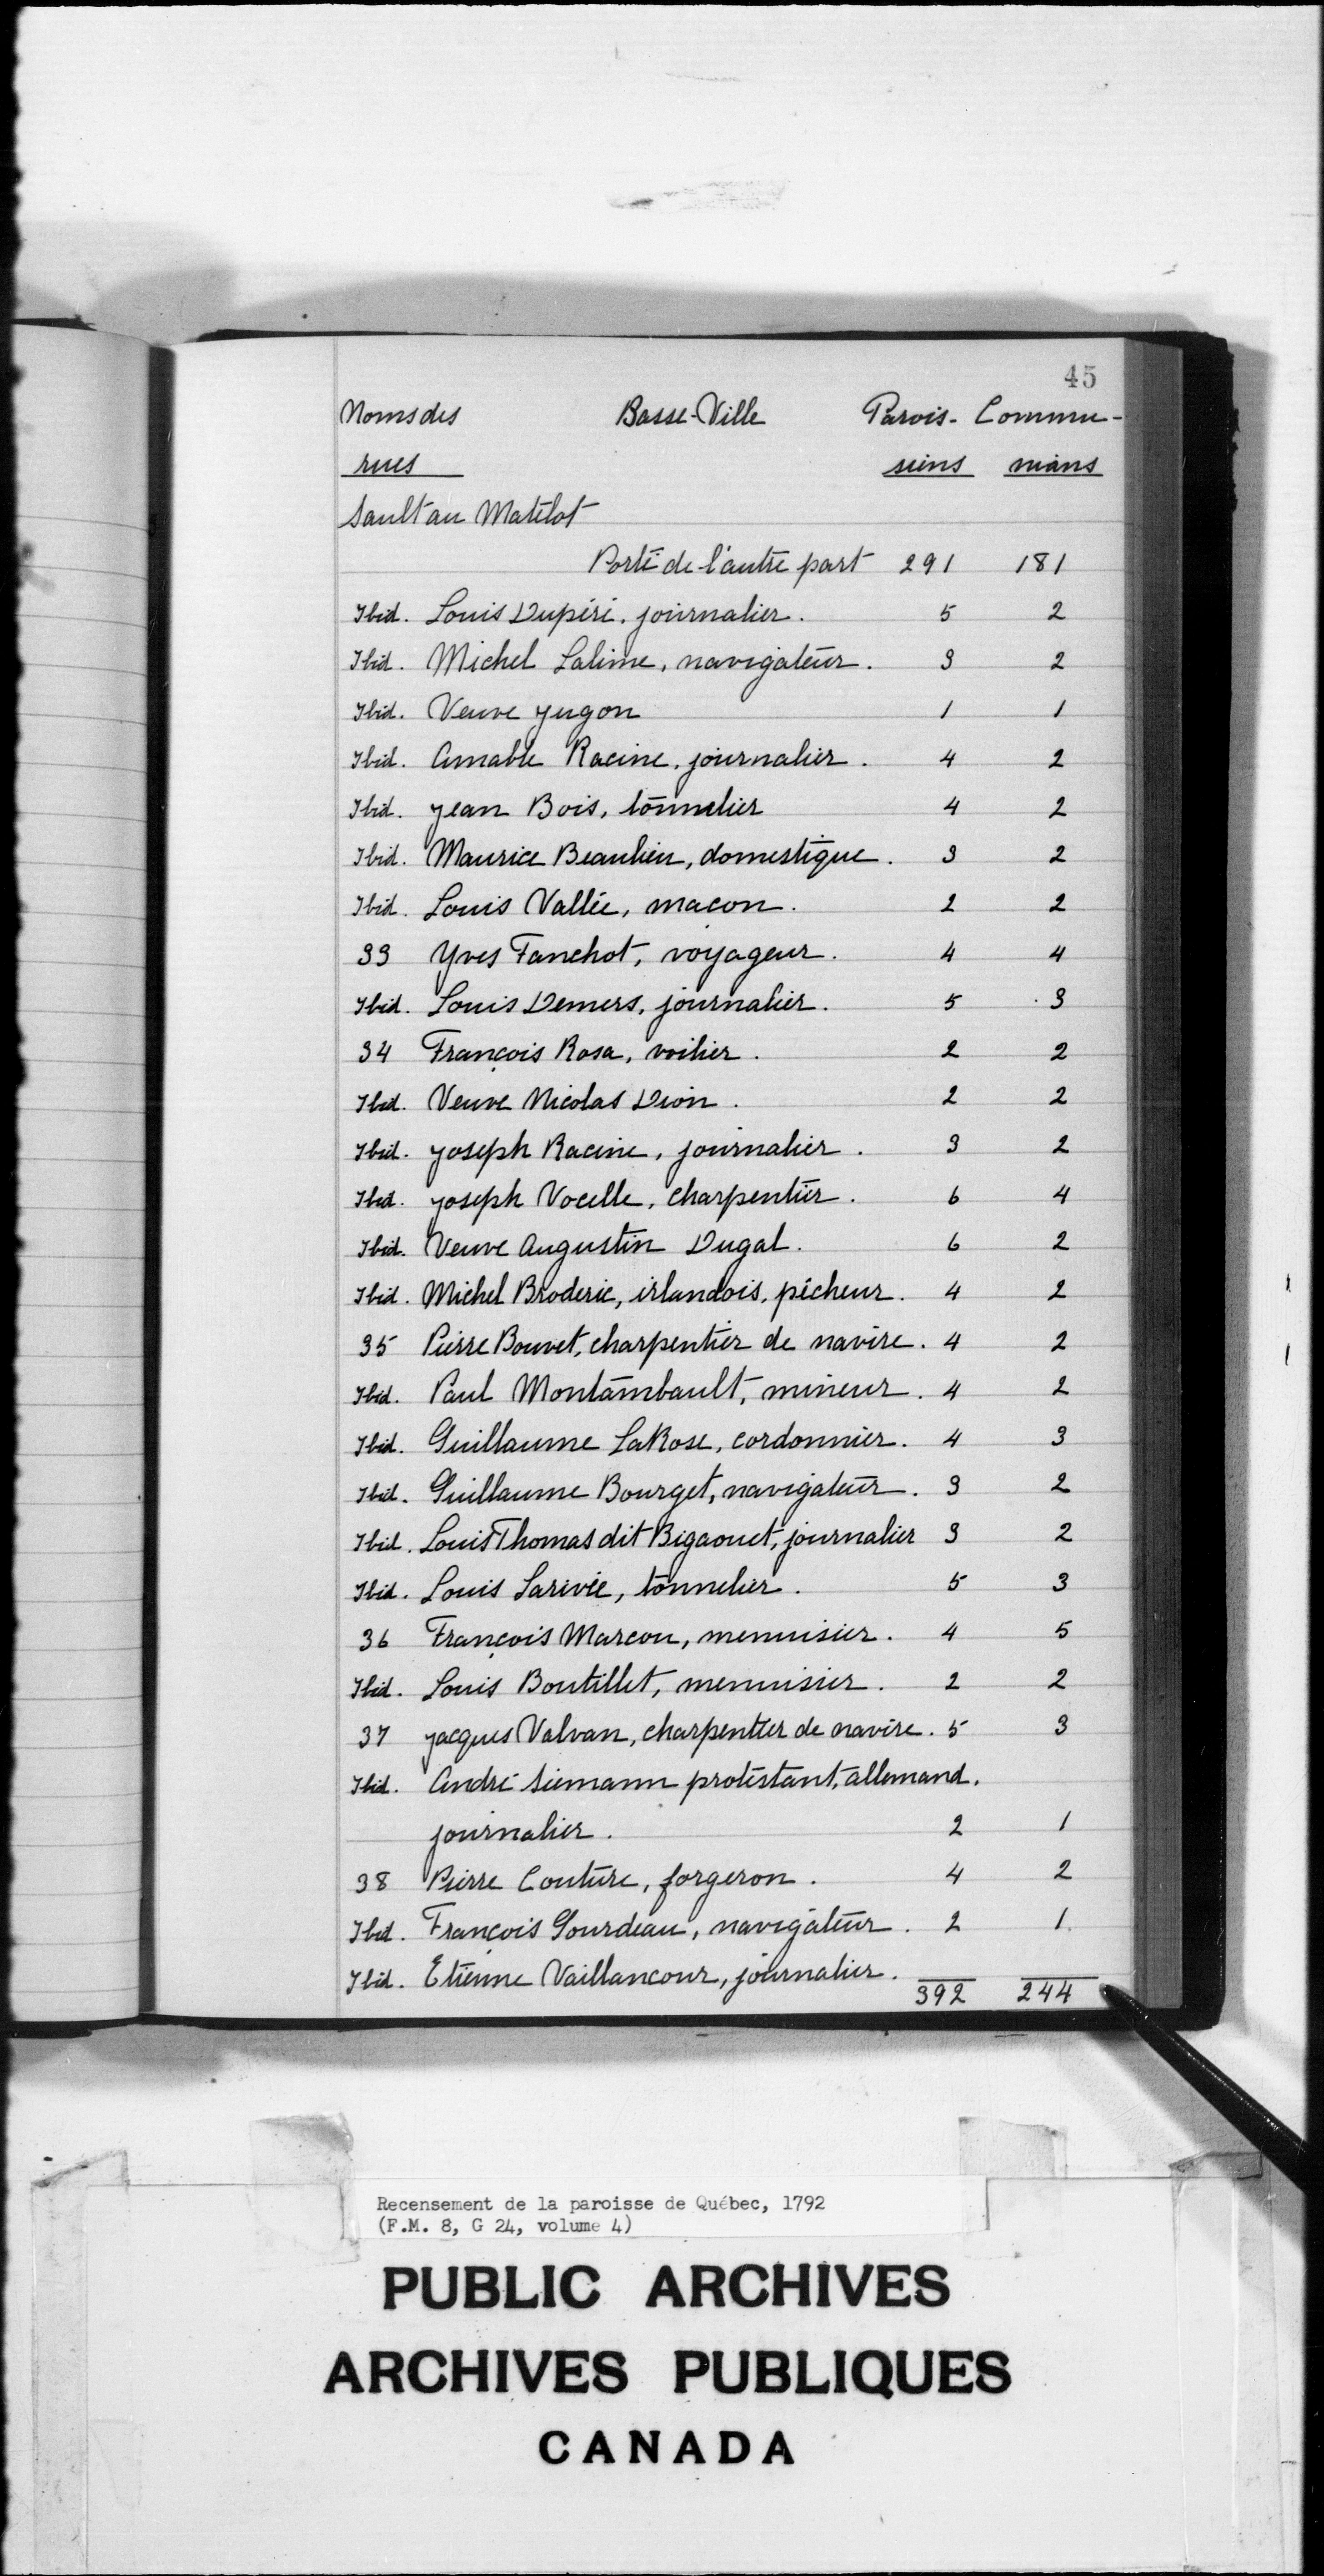 45
Noms des Basse-Ville Parois- Commu-
rues siens nians
Sault au Matelot
Porté de l'autre part 291 181
Ibid. Louis Dupéré, journalier. 5 2
Ibid. Michel Lalime, navigateur. 3 2
Ibid. Veuve Jugon 1 1
Ibid. Amable Racine, journalier. 4 2
Ibid. Jean Bois, tonnelier 4 2
Ibid. Maurice Beaulieu, domestique. 3 2
Ibid. Louis Vallée, maçon. 2 2
33 Yves Fanchot, voyageur. 4 4
Ibid. Louis Demers, journalier. 5 3
34 François Rosa, voilier. 2 2
Ibid. Veuve Nicolas Dion. 2 2
Ibid. Joseph Racine, journalier. 3 2
Ibid. Joseph Vocelle, charpentier. 6 4
Ibid. Veuve Augustin Dugal. 6 2
Ibid. Michel Broderic, irlandois, pêcheur. 4 2
35 Pierre Bouvet, charpentier de navire. 4 2
Ibid. Paul Montambault, mineur. 4 2
Ibid. Guillaume LaRose, cordonnier. 4 3
Ibid. Guillaume Bourget, navigateur. 3 2
Ibid. Louis Thomas dit Bigaouet, journalier 3 2
Ibid. Louis Larivée, tonnelier. 5 3
36 François Marcou, menuisier. 4 5
Ibid. Louis Boutillet, menuisier. 2 2
37 Jacques Valvan, charpentier de navire. 5 3
Ibid. André Siemann protestant, allemand,
journalier. 2 1
38 Pierre Couture, forgeron. 4 2
Ibid. François Gourdeau, navigateur. 2 1
Ibid. Etienne Vaillancour, journalier.
392 244
Recensement de la paroisse de Québec, 1792
(F.M. 8, G 24, volume 4)
PUBLIC ARCHIVES
ARCHIVES PUBLIQUES
CANADA